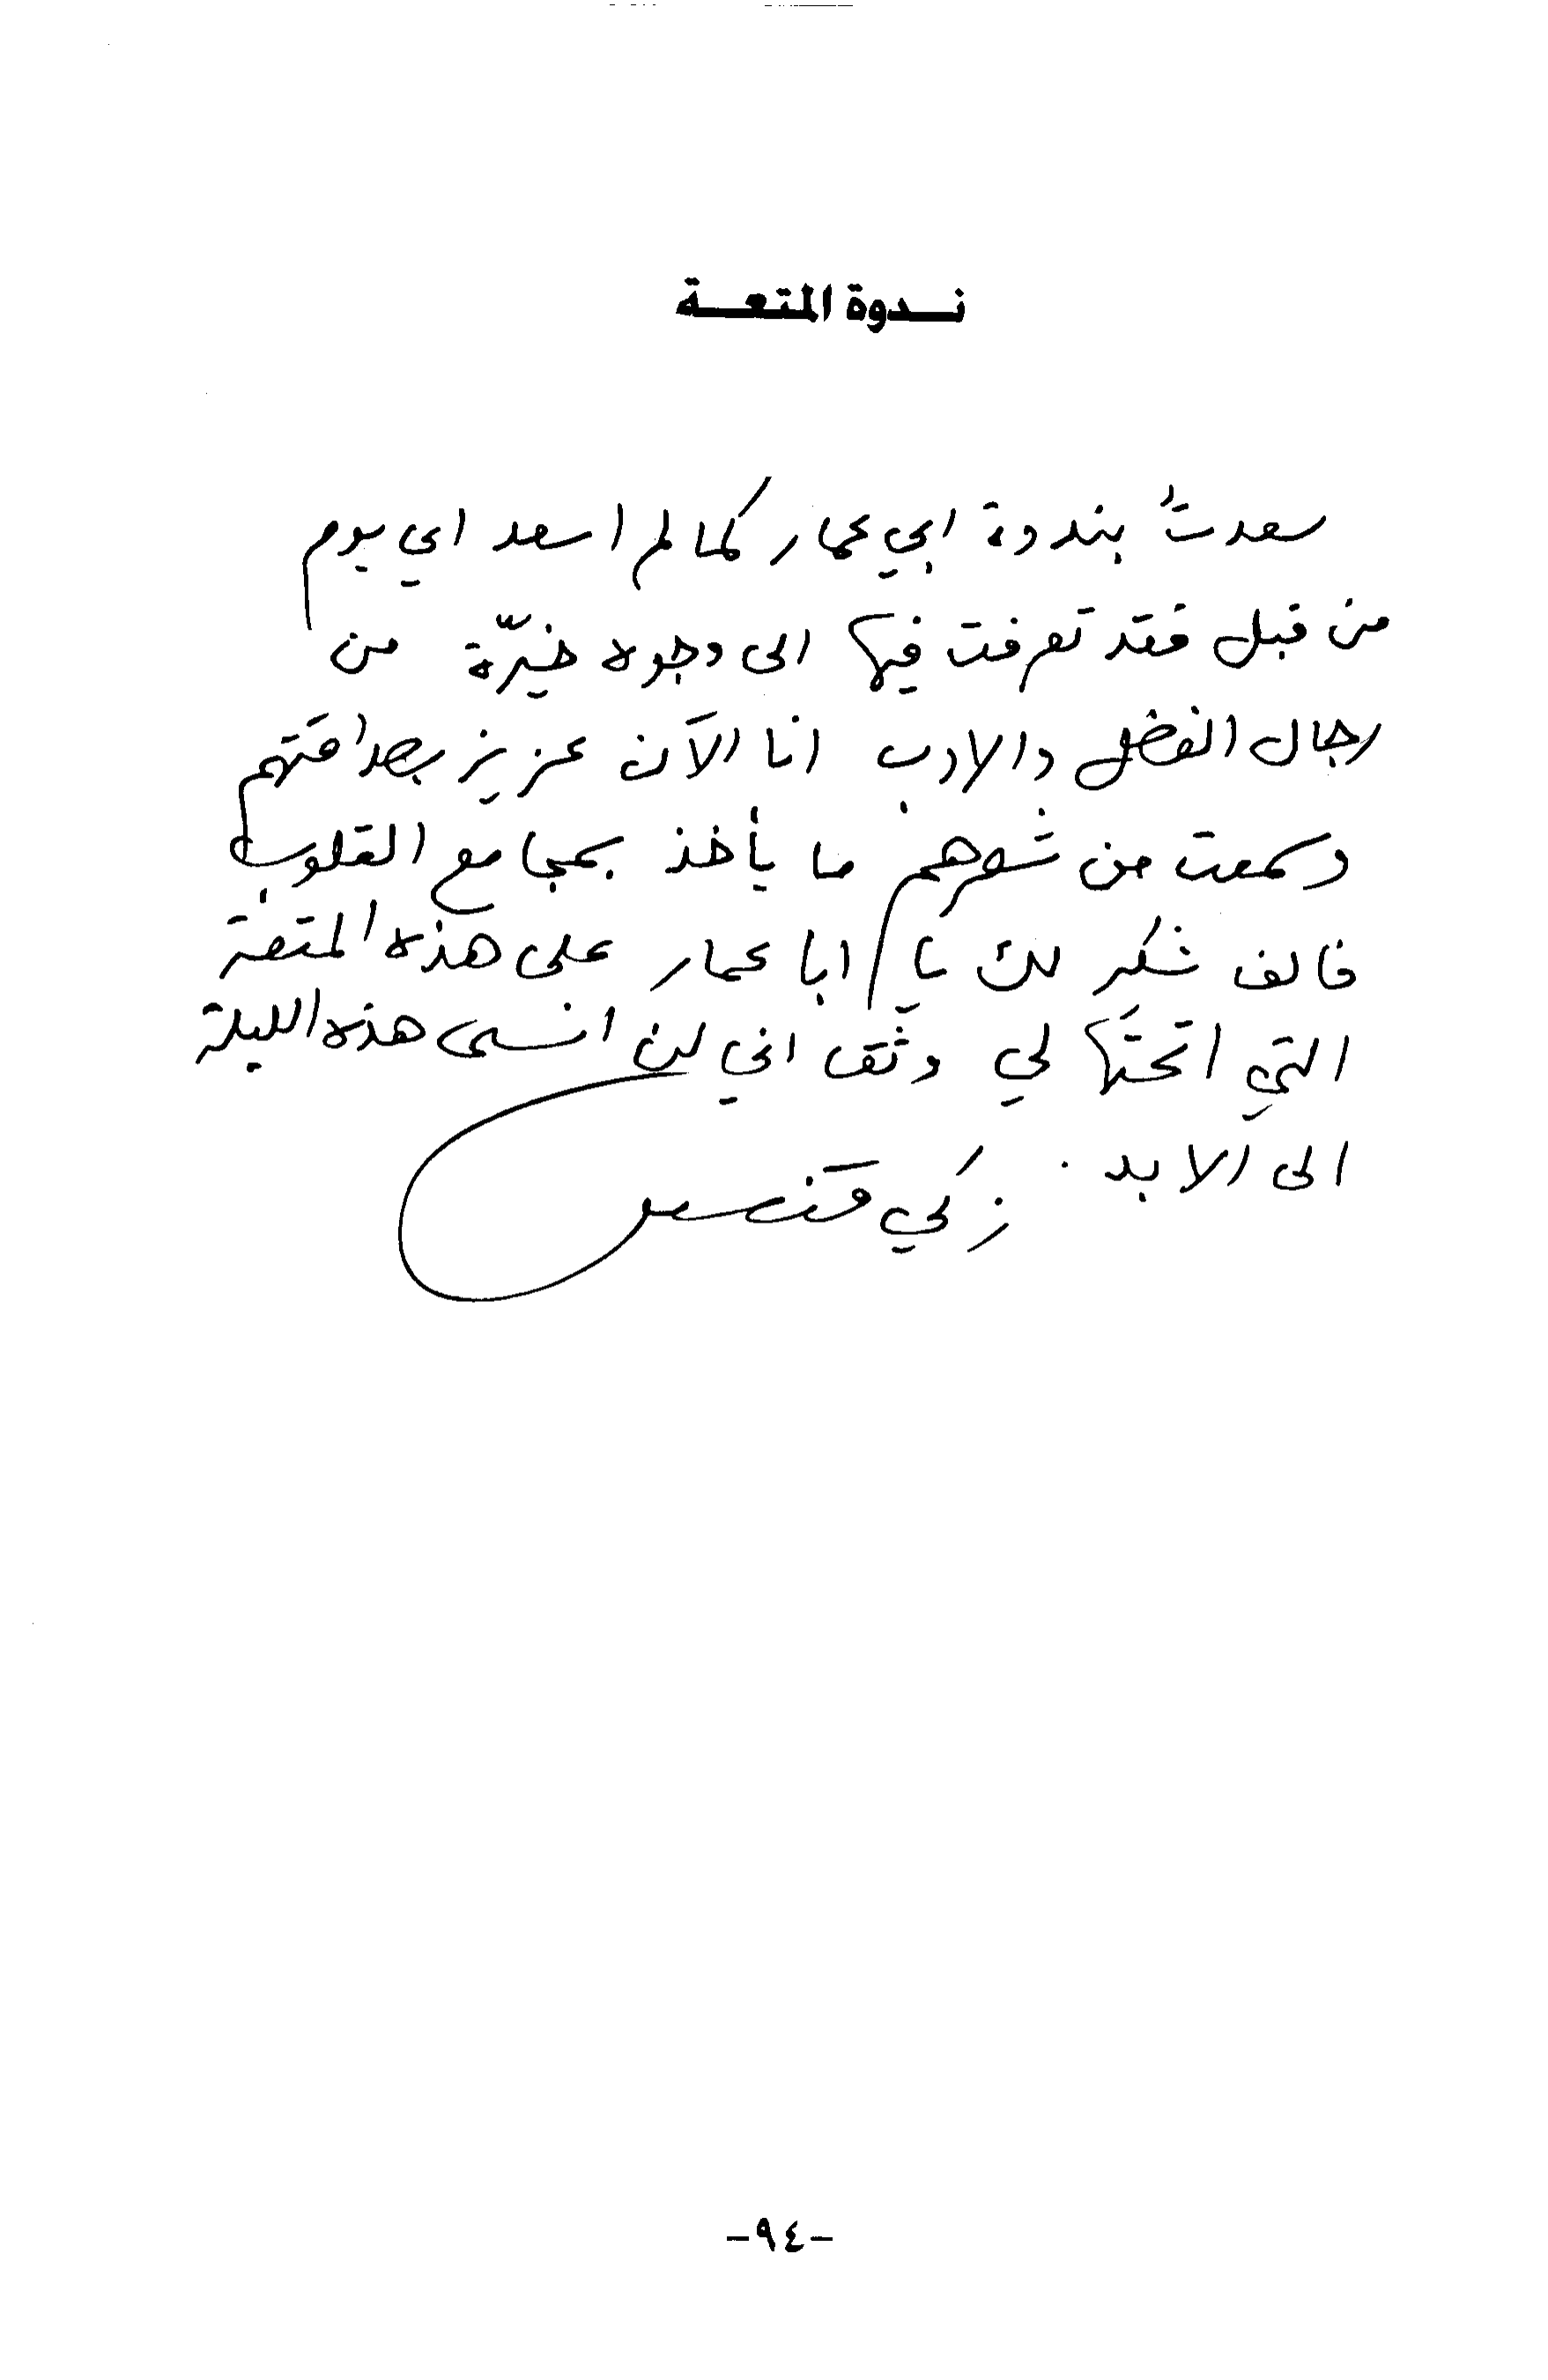 ندوة المتعة
سعدتُ بندوة ابي عمار كما لم اسعد اي يوم
من قبل فقد تعرفت فيها الى وجوه خيّرة من
رجال الفضل والادب انا الآن عزيز بصداقتهم
وسمعت من شعرهم ما يأخذ بمجامع القلوب
فالف شكر لك يا ابا عمار على هذه المتعة
التي اتحتَها لي وثق اني لن انسى هذه الليلة
الى الابد .
زكي قنصل
-٩٤-